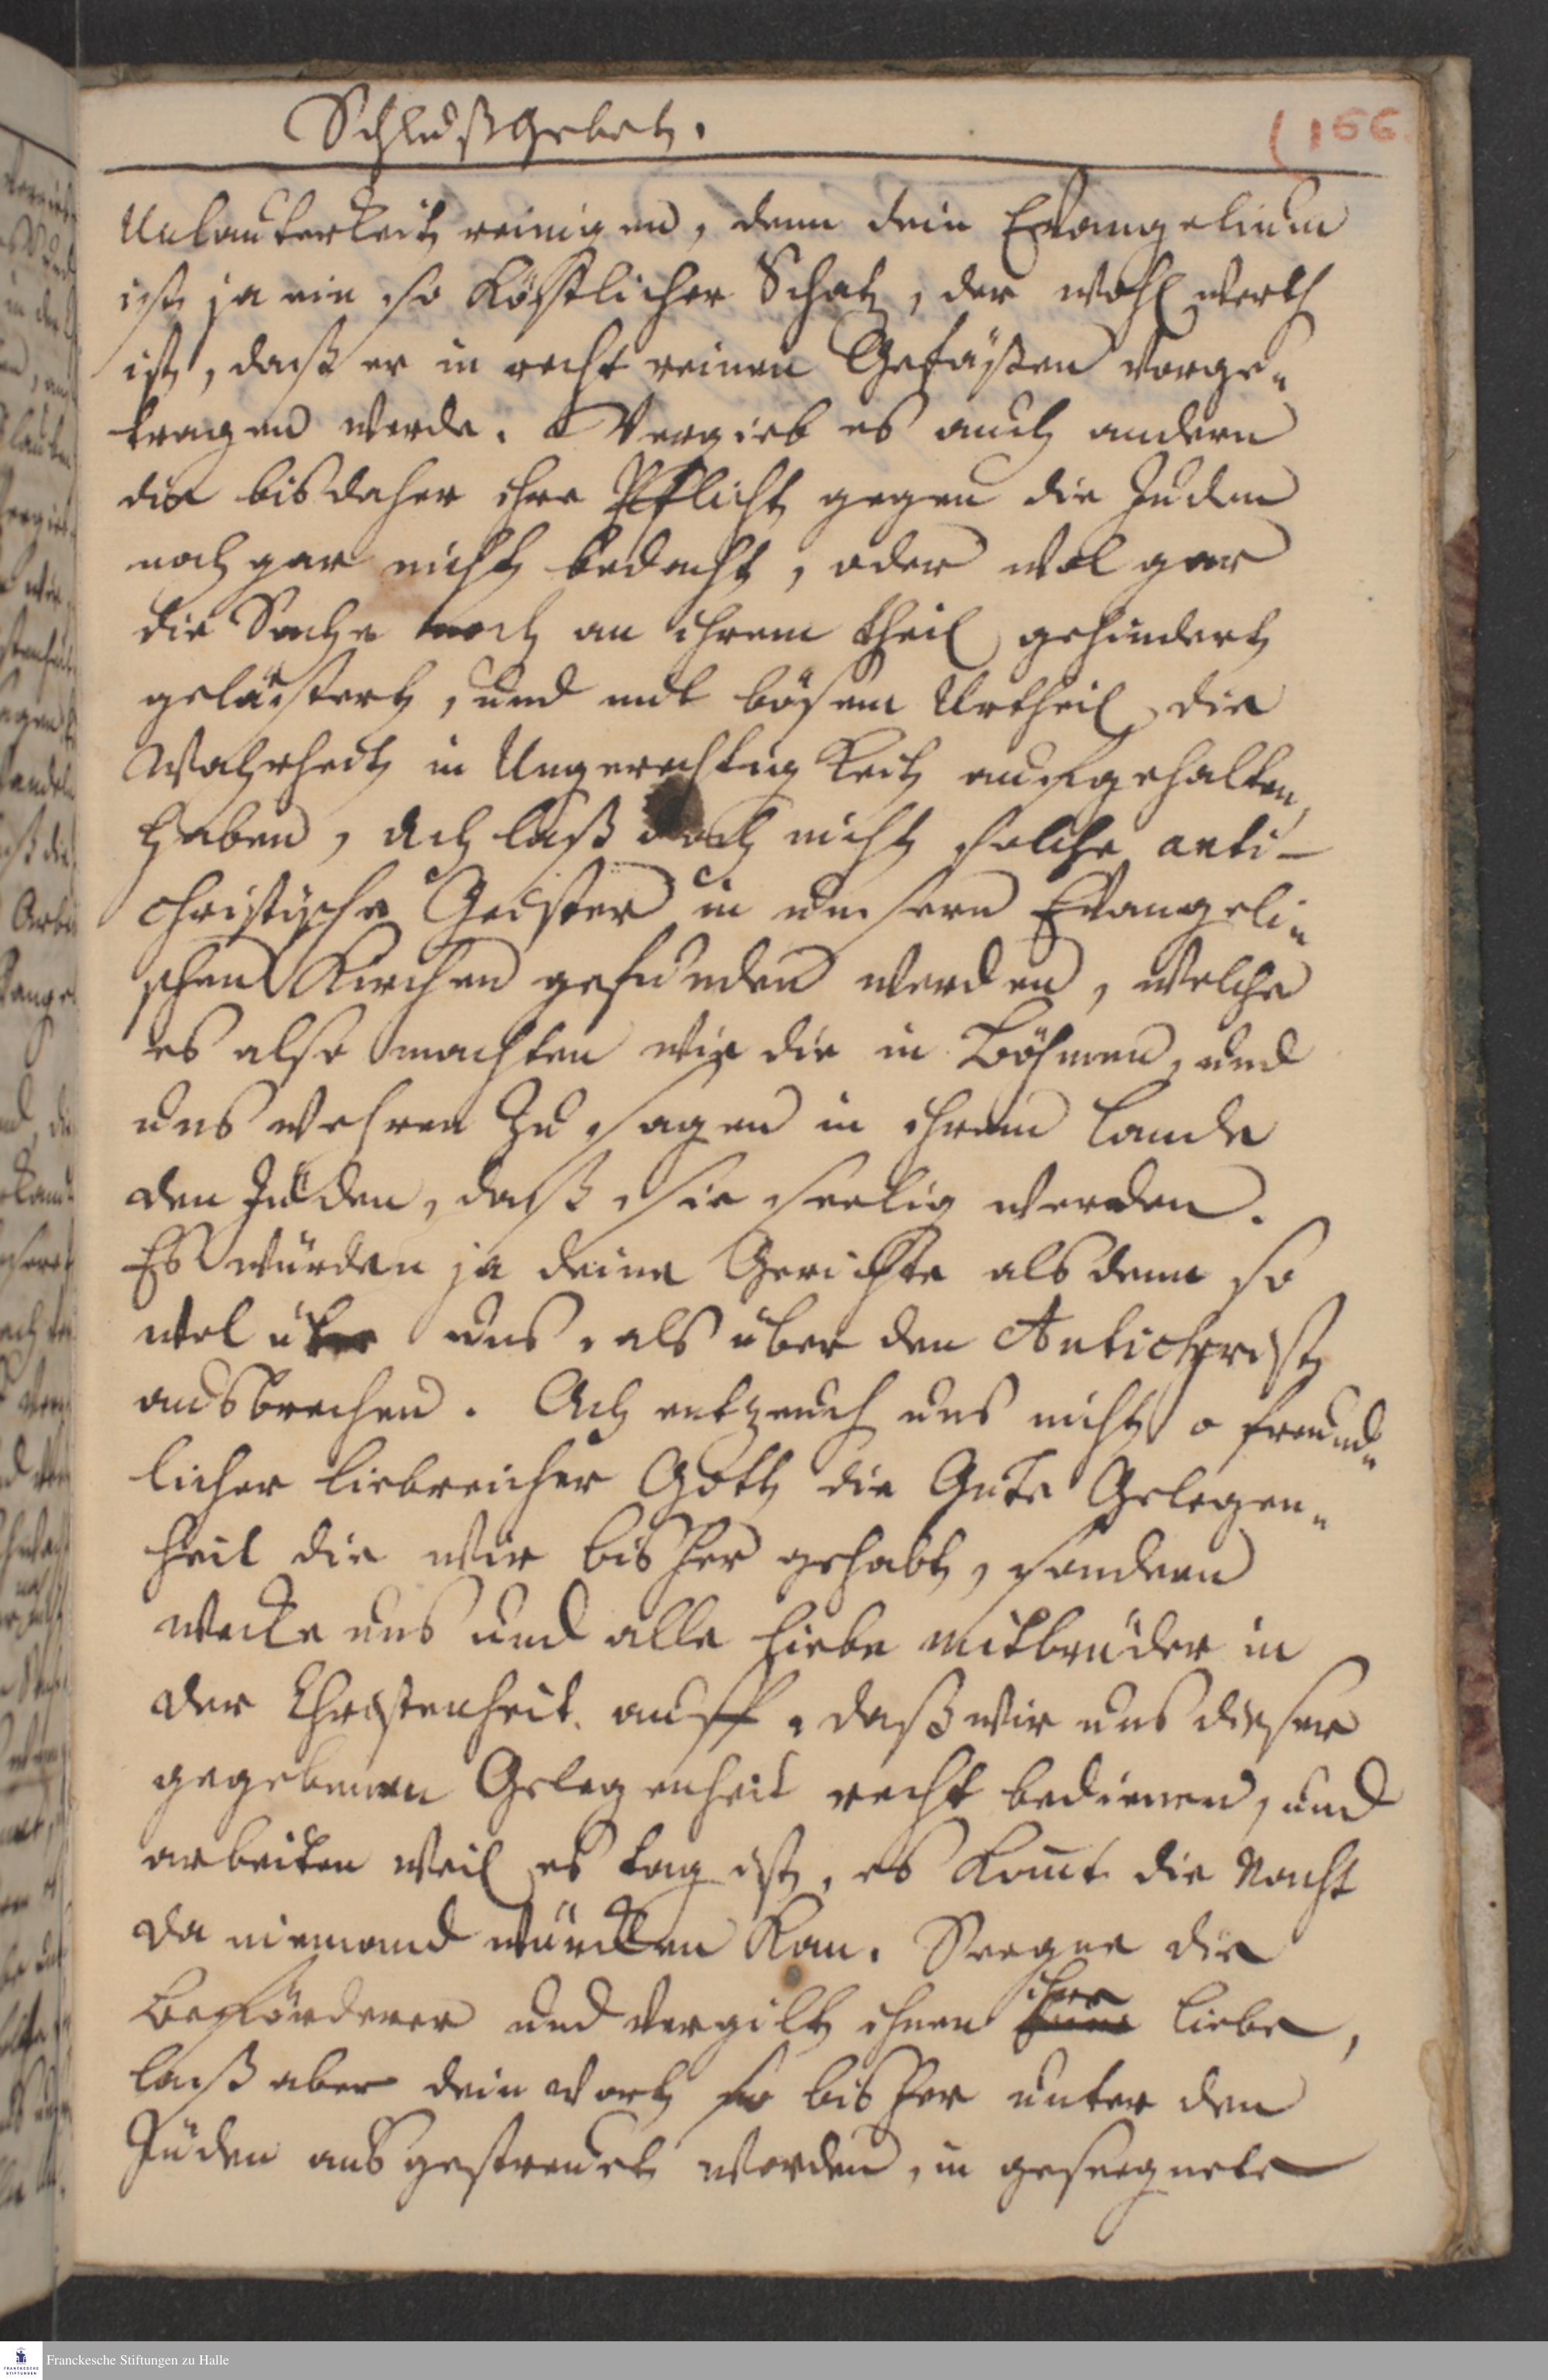 Schlußgebet.
(166.
Unlauterkeit reinigen, denn dein Evangelium
ist ja ein so köstlicher Schatz, der wohl werth
ist, daß er in recht reinen Gefäßen vorge„
tragen werde. Vergieb es auch andern
die bisdaher ihre Pflicht gegen die Juden
noch gar nicht bedacht, oder wol gar
die Sache noch an ihrem theil gehindert
gelästert, und mit bösem Urtheil die
Wahrheit in Ungerechtigkeit aufgehalten,
haben, Ach laß doch nicht solche anti-
christische Geister in unsern Evangeli„
schen Kirchen gefunden werden, welche
es also machten wie die in Böhmen, und
uns wehren zu sagen in ihrem Lande
den Jüden, daß sie seelig werden.
Es würden ja deine Gerichte alsdenn so
wol über uns, als über den Antichrist
ausbrechen. Ach entzeuch uns nicht o freund„
licher liebreicher Gott die Gute Gelegen„
heit die wir bisher gehabt, sondern
wecke uns und alle liebe mitbrüder in
der Christenheit auff, daß wir uns dieser
gegebenen Gelegenheit recht bedienen, und
arbeiten weil es tag ist, es komt die Nacht
da niemand würcken kan. Seegne die
Beförderer und vergilt ihnen ihre Liebe,
laß aber dein wort so bisher unter den
Jüden ausgestreuet worden, in geseegnete
Franckesche Stiftungen zu Halle